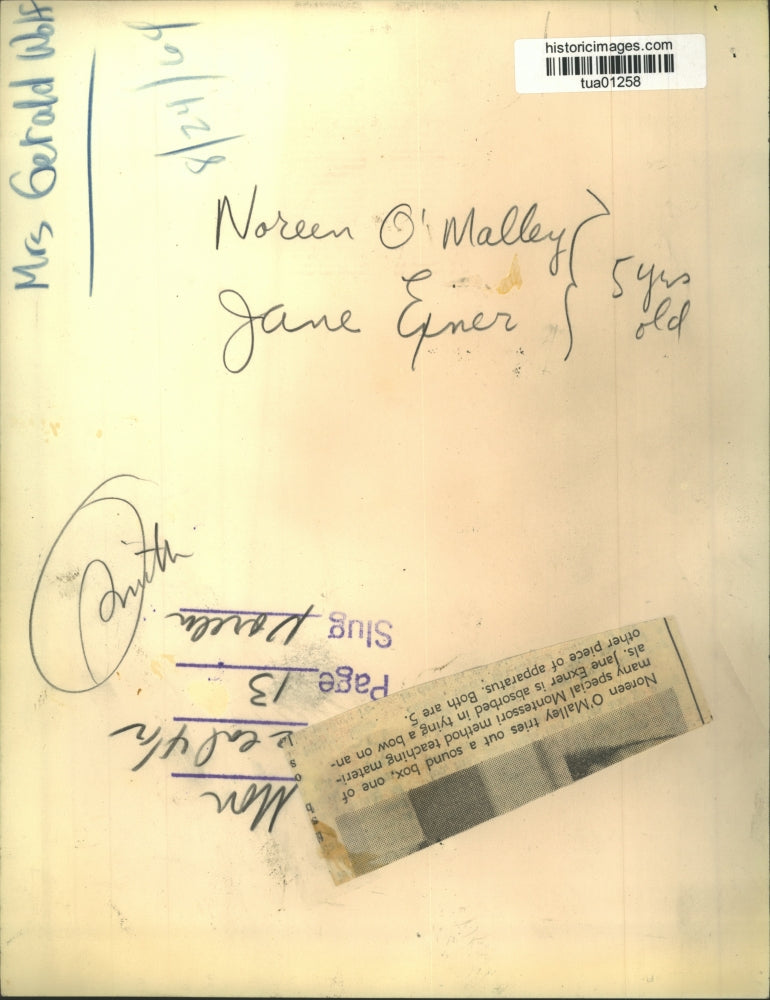 historicimages.com
tua01258
Mrs Gerald Wolf
8/24/64
Noreen O'Malley
Jane Exner
5 yrs
old
Smith
Slug Noreen
Page 13
Mon
Noreen O'Malley tries out a sound box, one of
many special Montessori method teaching materi-
als. Jane Exner is absorbed in tying a bow on an-
other piece of apparatus. Both are 5.